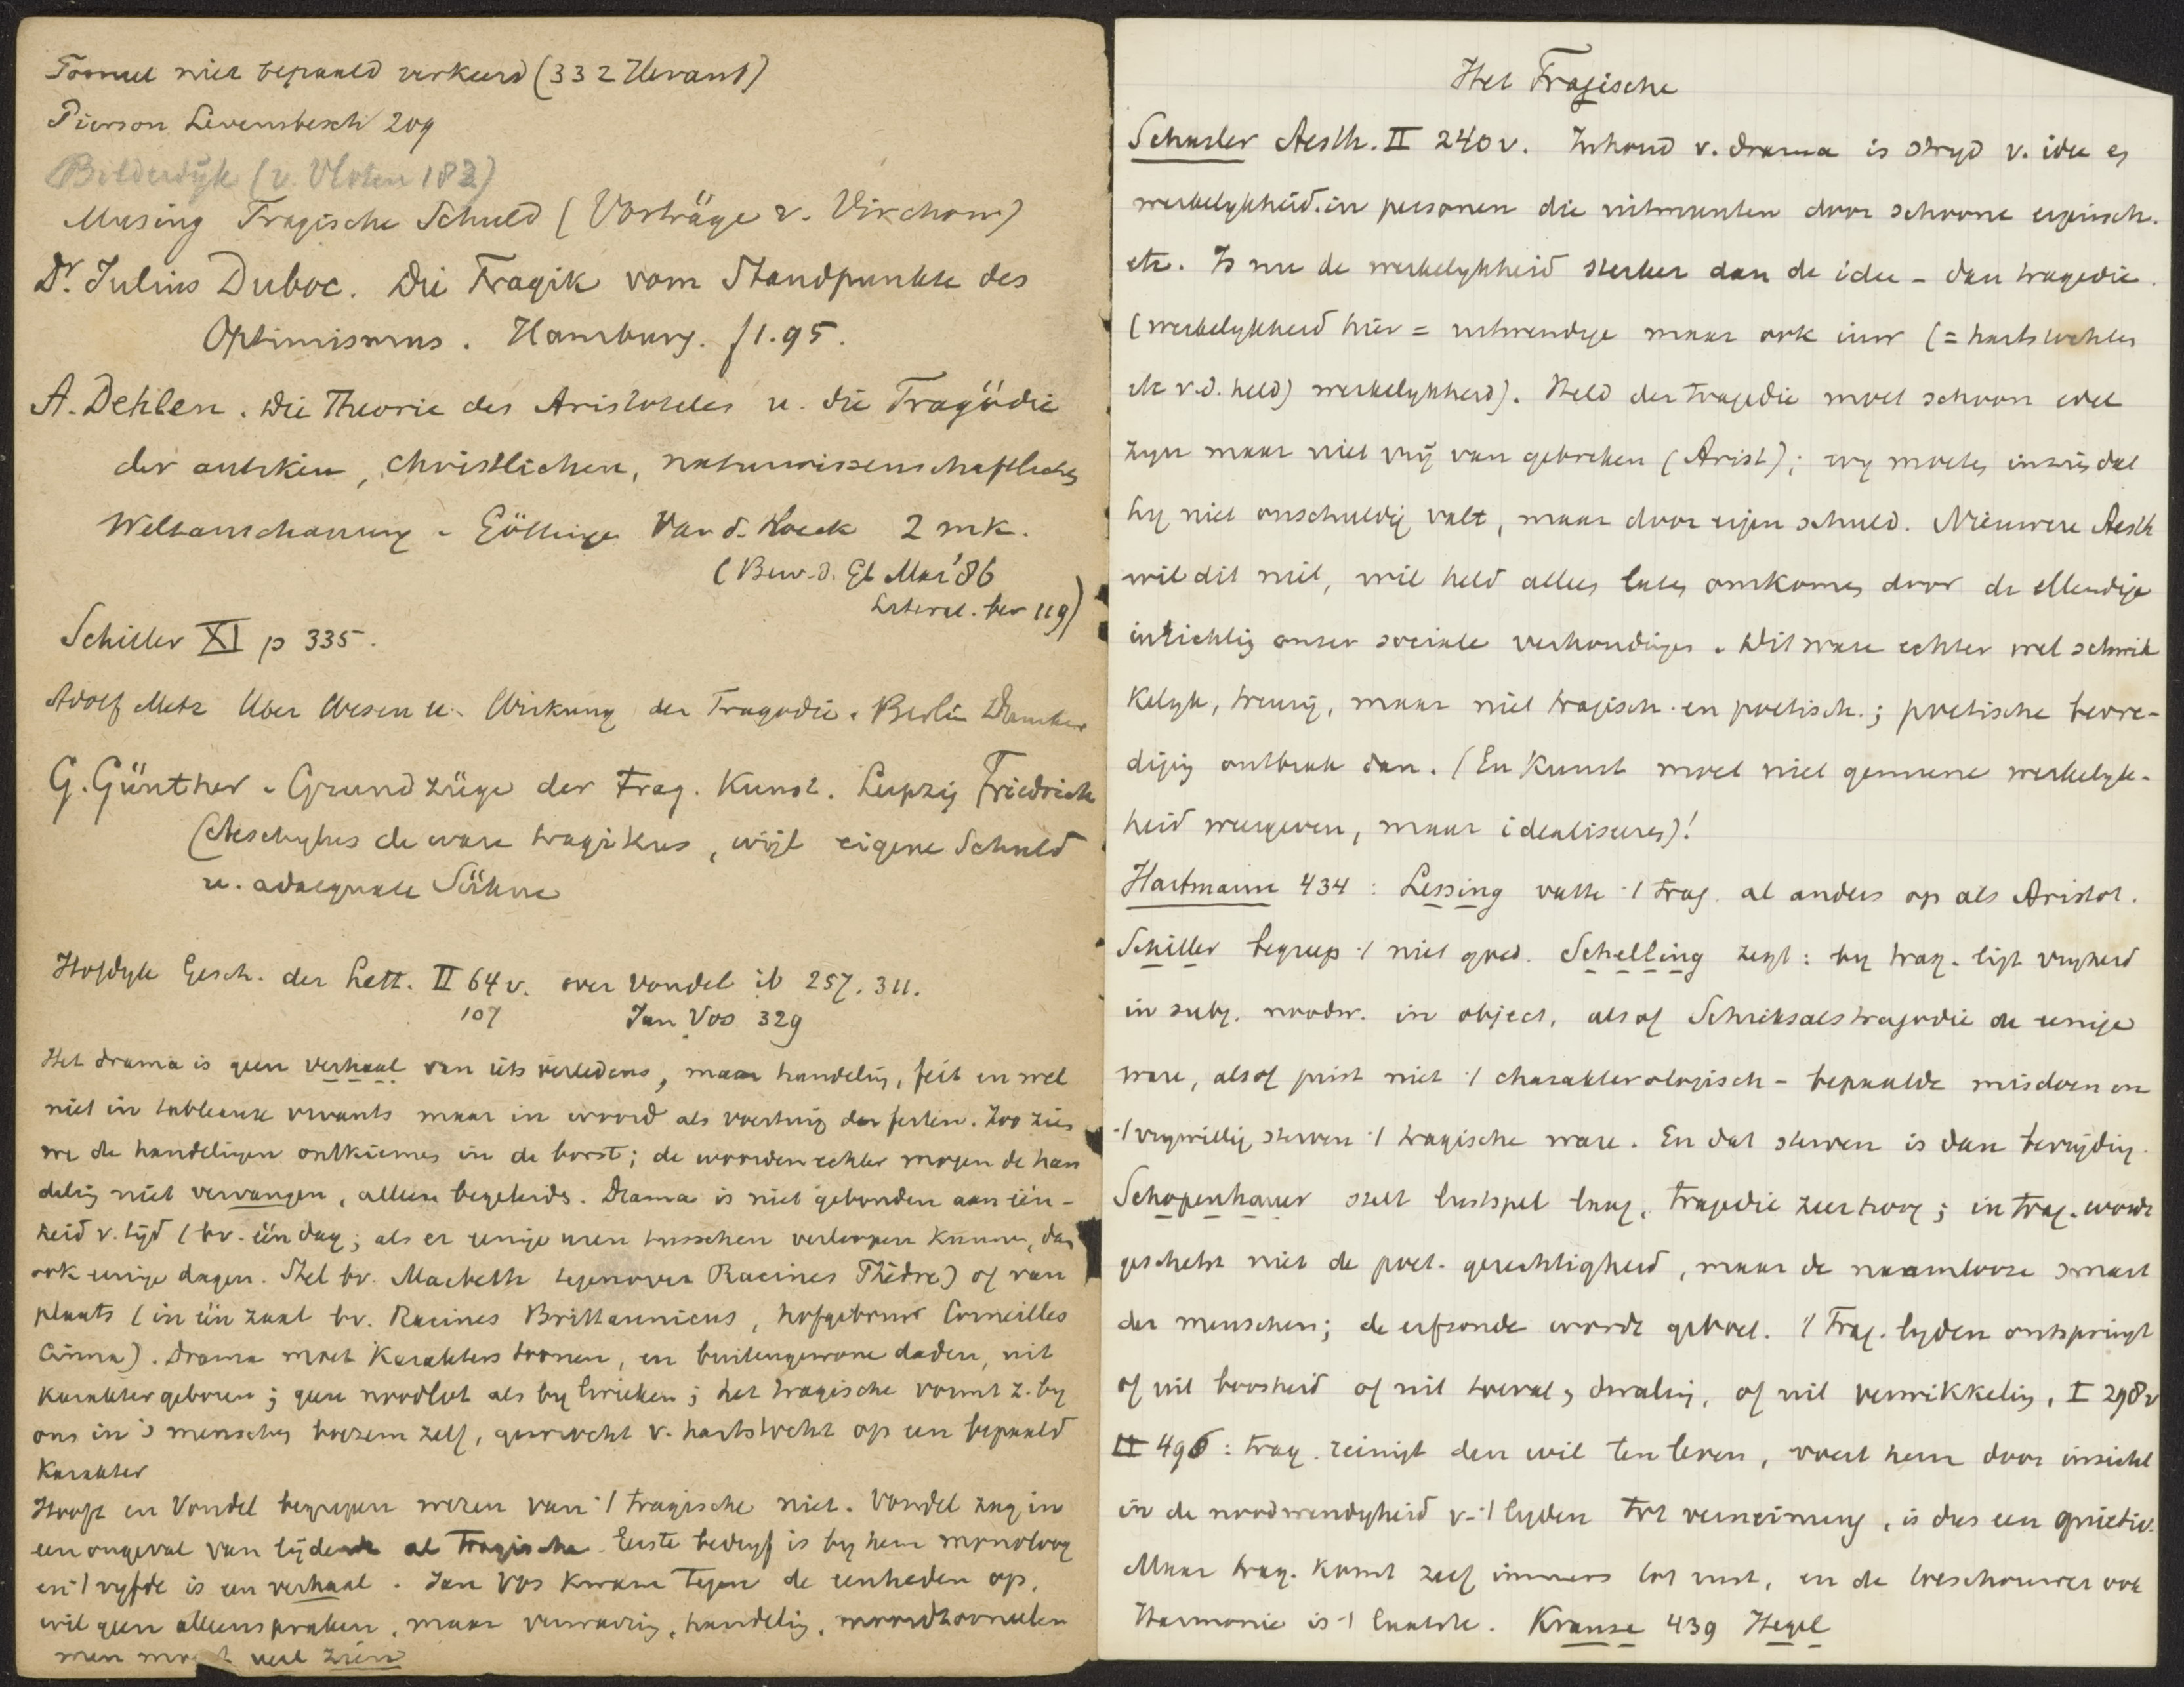 Tooneel niet bepaald verkeerd (332 Uerant)
Pierson Levensbesch 209
Bilderdijk (v. Vloten 182)
Musing Tragische Schuld (Vorträge v. Virchow)
Dr. Julius Duboc. Die Tragik vom Standpunkte des
Optimismus. Hamburg. f1.95.
A. Dehlen. Die Theorie des Aristoteles u. die Tragödie
der antiken, christlichen, naturwissenschaftlichen
Weltanschauung. Göttingen Van d. Hoeck 2 mk.
(Bew. d. Gl Mai '86
Literat. ber 119)
Schiller XI p 335.
Adolf Metz Uber Wesen u. Wirkung der Tragodie. Berlin Duncker
G. Günther. Grundzüge der trag. Kunst. Leipzig Friedrich
(Aeschylus de ware tragikus, wijl eigene Schuld
u. adaequate Sühne
Hofdyk Gesch. der Lett. II 64 v. over Vondel ib 257. 311.
107 Jan Vos 329
Het drama is geen verhaal van iets verledens, maar handeling, feit en wel
niet in tableaux vivants maar in woord als voertuig der feiten. Zoo zien
we de handelingen ontkiemen in de borst; de woorden echter mogen de han
deling niet vervangen, alleen begeleiden. Drama is niet gebonden aan één-
heid v. tijd (bv. één dag; als er eenige uren tusschen verloopen kunnen, dan
ook eenige dagen. Stel bv. Macbeth tegenover Racines Phèdre) of van
plaats (in één zaal bv. Racines Brittannicus, hofgebouw Corneilles
Cinna). Drama moet karakters toonen, en buitengewone daden, uit
karakter geboren; geen noodlot als by Grieken; het tragische vormt z. by
ons in 's menschen boezem zelf, gewrocht v. hartstocht op een bepaald
karakter
Hooft en Vondel begrepen wezen van 't tragische niet. Vondel zag in
een ongeval van lijden al tragische. Eerste bedryf is by hem monoloog
en 't vyfde is een verhaal. Jan Vos kwam tegen de eenheden op,
wil geen alleenspraken, maar verrassing, handeling, moordtooneelen
men moet veel zien
Het Tragische
Schasler Aesth. II 240 v. Inhoud v. drama is stryd v. idee en
werkelykheid. in personen die uitmunten door schoone eigensch.
etc. Is nu de werkelykheid sterker dan de idee – dan tragedie.
(werkelykheid hier = uitwendige maar ook inw (= hartstochten
etc v.d. held) werkelykheid). Held der tragedie moet schoon edel
zyn maar niet vrij van gebreken (Arist); wy moeten inzien dat
hy niet onschuldig valt, maar door eigen schuld. Nieuwere Aesth
wil dit niet, wil held alleen laten omkomen door de ellendige
inrichting onzer sociale verhoudingen. Dit ware echter wel schrik
kelyk, treurig, maar niet tragisch en poetisch; poetische bevre-
diging ontbrak dan. (En kunst moet niet gemeene werkelyk-
heid weergeven, maar idealiseren)!
Hartmann 434: Lessing vatte 't trag. al anders op als Aristot.
Schiller begreep 't niet goed. Schelling zegt: by trag. ligt vryheid
in subj. noodw. in object, alsof Schicksalstragodie de eenige
ware, alsof juist niet 't charakterologisch – bepaalde misdoen en
't vrywillig sterven 't tragische ware. En dat sterven is dan bevrijding.
Schopenhauer stelt lustspel laag, tragedie zeer hoog; in trag. wordt
geschetst niet de poet. gerechtigheid, maar de naamlooze smart
der menschen; de erfzonde wordt geboet. 't Trag. lyden ontspringt
of uit boosheid of uit toeval, dwaling, of uit verwikkeling. I 298 v
II 496: trag. reinigt den wil ten leven, voert hem door inzicht
in de noodwendigheid v. 't lyden tot verneining, is dus een quietiv.
Maar trag. komt zelf immers tot rust, en de beschouwer ook
Harmonie is 't laatste. Krause 439 Hegel